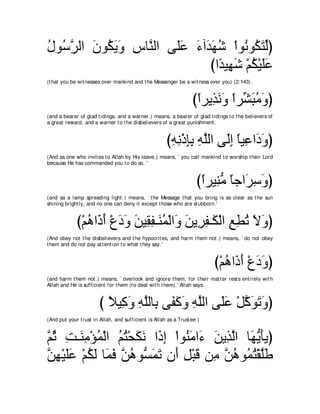 (لِّتَكُونُواْ شُهَدَآءَ عَلَى النَّاسِ وَيَكُونَ الرَّسُولُ
عَلَيْكُمْ شَهِيداً)
(that you be witnesses over mankind and the Messenger be a witness over you) (2:143).
(وَمُبَشِّراً وَنَذِيراً)
(and a bearer of glad tidings, and a warner.) means, a bearer of glad tidings to the believers of
a great reward, and a warner to the disbelievers of a great punishment.
(وَدَاعِياً إِلَى اللَّهِ بِإِذْنِهِ)
(And as one who invites to Allah by His leave,) means, `you call mankind to worship their Lord
because He has commanded you to do so.'
(وَسِرَاجاً مُّنِيراً)
(and as a lamp spreading light.) means, `the Message that you bring is as clear as the sun
shining brightly, and no one can deny it except those who are stubborn.'
(وَلاَ تُطِعِ الْكَـفِرِينَ وَالْمُنَـفِقِينَ وَدَعْ أَذَاهُمْ)
(And obey not the disbelievers and the hypocrites, and harm them not.) means, `do not obey
them and do not pay attention to what they say.'
(وَدَعْ أَذَاهُمْ)
(and harm them not.) means, `overlook and ignore them, for their matter rests entirely with
Allah and He is sufficient for them (to deal with them).' Allah says:
(وَتَوَكَّلْ عَلَى اللَّهِ وَكَفَى بِاللَّهِ وَكِيلاً )
(And put your trust in Allah, and sufficient is Allah as a Trustee.)
(يأَيُّهَا الَّذِينَ ءَامَنُواْ إِذَا نَكَحْتُمُ الْمُؤْمِنَـتِ ثُمَّ
طَلَّقْتُمُوهُنَّ مِن قَبْلِ أَن تَمَسُّوهُنَّ فَمَا لَكُمْ عَلَيْهِنَّ